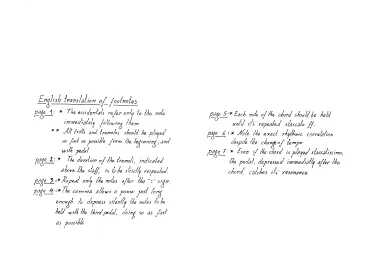 English translation of footnotes
page 1: * The accidentals refer only to the note
immediately following them
** All trills and tremolos should be played
as fast as possible from the beginning, and
with pedal
page 2: * The duration of the tremoli, indicated
above the staff, is to be strictly respected.
page 3: * Repeat only the notes after the sign.
page 4: * The comma allows a pause just long
enough to depress silently the notes to be
held with the third pedal, doing so as fast
as possible
page 5: * Each note of the chord should be held
until its repeated staccato ff.
page 6: * Note the exact rhythmic correlation
despite the change of tempo
page 7: * Even if the chord is played staccatissimo,
the pedal, depressed immediately after the
chord, catches its resonance